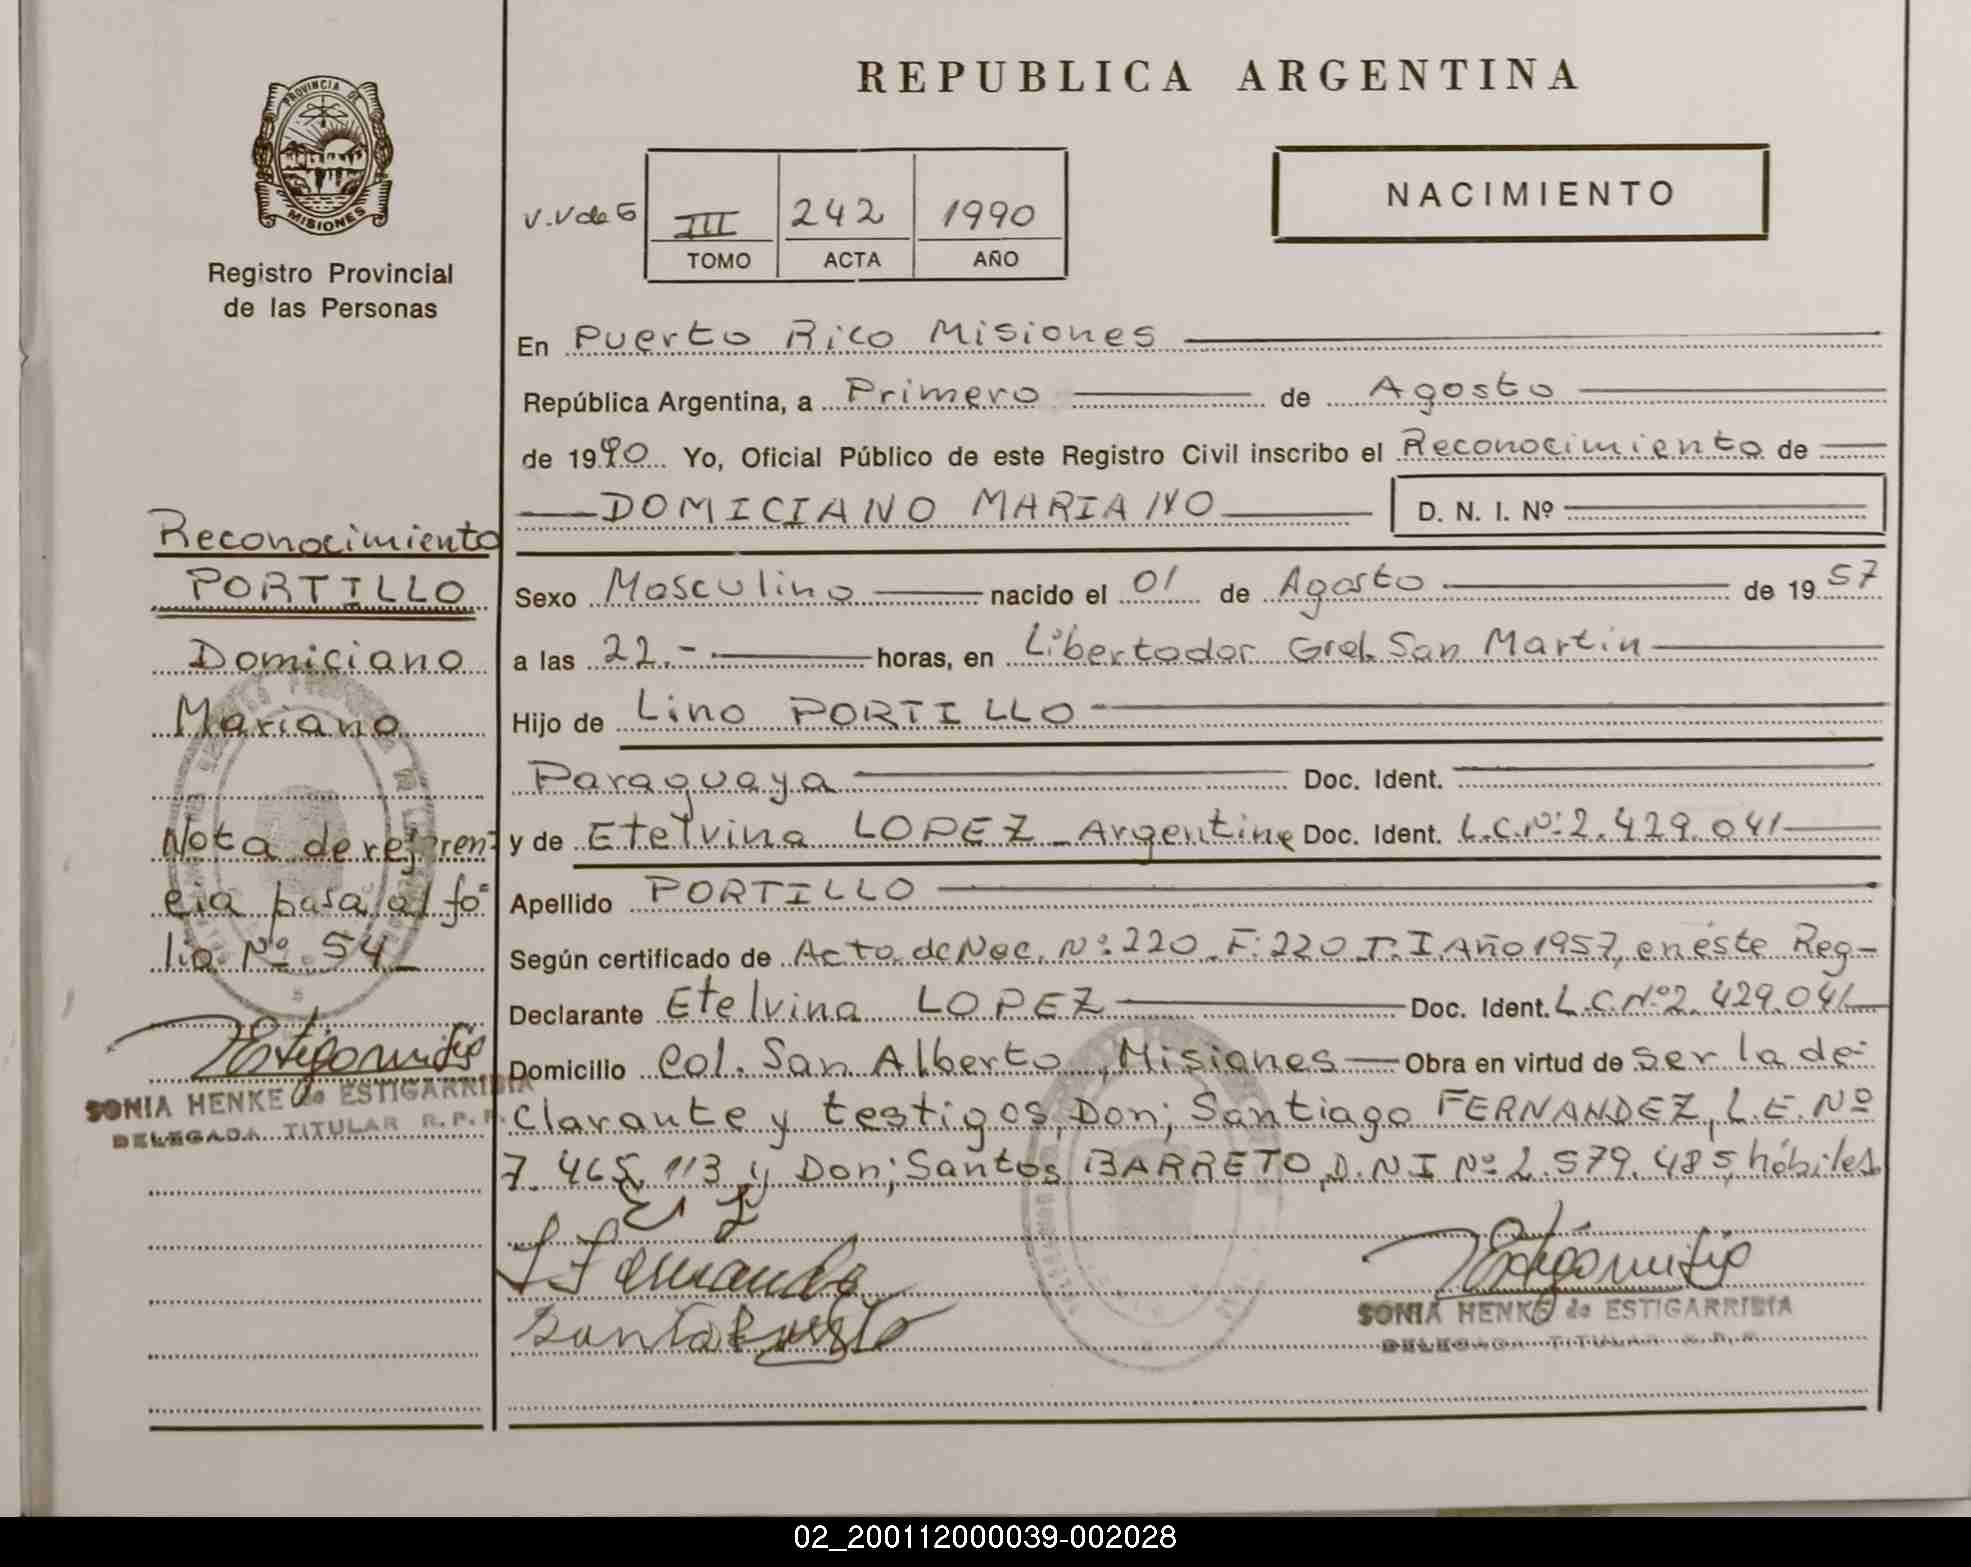 REPUBLICA ARGENTINA
PROVINCIA DE
MISIONES
Registro Provincial
de las Personas
V.V de G
III 242 1990
TOMO ACTA AÑO
NACIMIENTO
En Puerto Rico Misiones
República Argentina, a Primero de Agosto
de 1990 Yo, Oficial Público de este Registro Civil inscribo el Reconocimiento de
DOMICIANO MARIANO D. N. I. Nº
Sexo Masculino nacido el 01 de Agosto de 1957
a las 22.- horas, en Libertador Gral. San Martin
Hijo de Lino PORTILLO
Paraguaya Doc. Ident.
y de Etelvina LOPEZ - Argentina Doc. Ident. L.C.Nº: 2.429.041
Apellido PORTILLO
Según certificado de Acta de Nac. Nº: 220. F: 220 T. I. Año 1957, en éste Reg-
Declarante Etelvina LOPEZ Doc. Ident. L.C.Nº 2.429.041
Domicilio Col. San Alberto, Misiones Obra en virtud de ser la de-
clarante y testigos, Don; Santiago FERNANDEZ, L.E. Nº
7.465.113 y Don; Santos BARRETO, D.N.I Nº 2.579.485, hábiles
SONIA HENKE de ESTIGARRIBIA
DELEGADA TITULAR R.P.P.
Reconocimiento
PORTILLO
Domiciano
Mariano
Nota de referen-
cia pasa al fo-
lio. Nº. 54-
SONIA HENKE de ESTIGARRIBIA
DELEGADA TITULAR R.P.P.
02_200112000039-002028